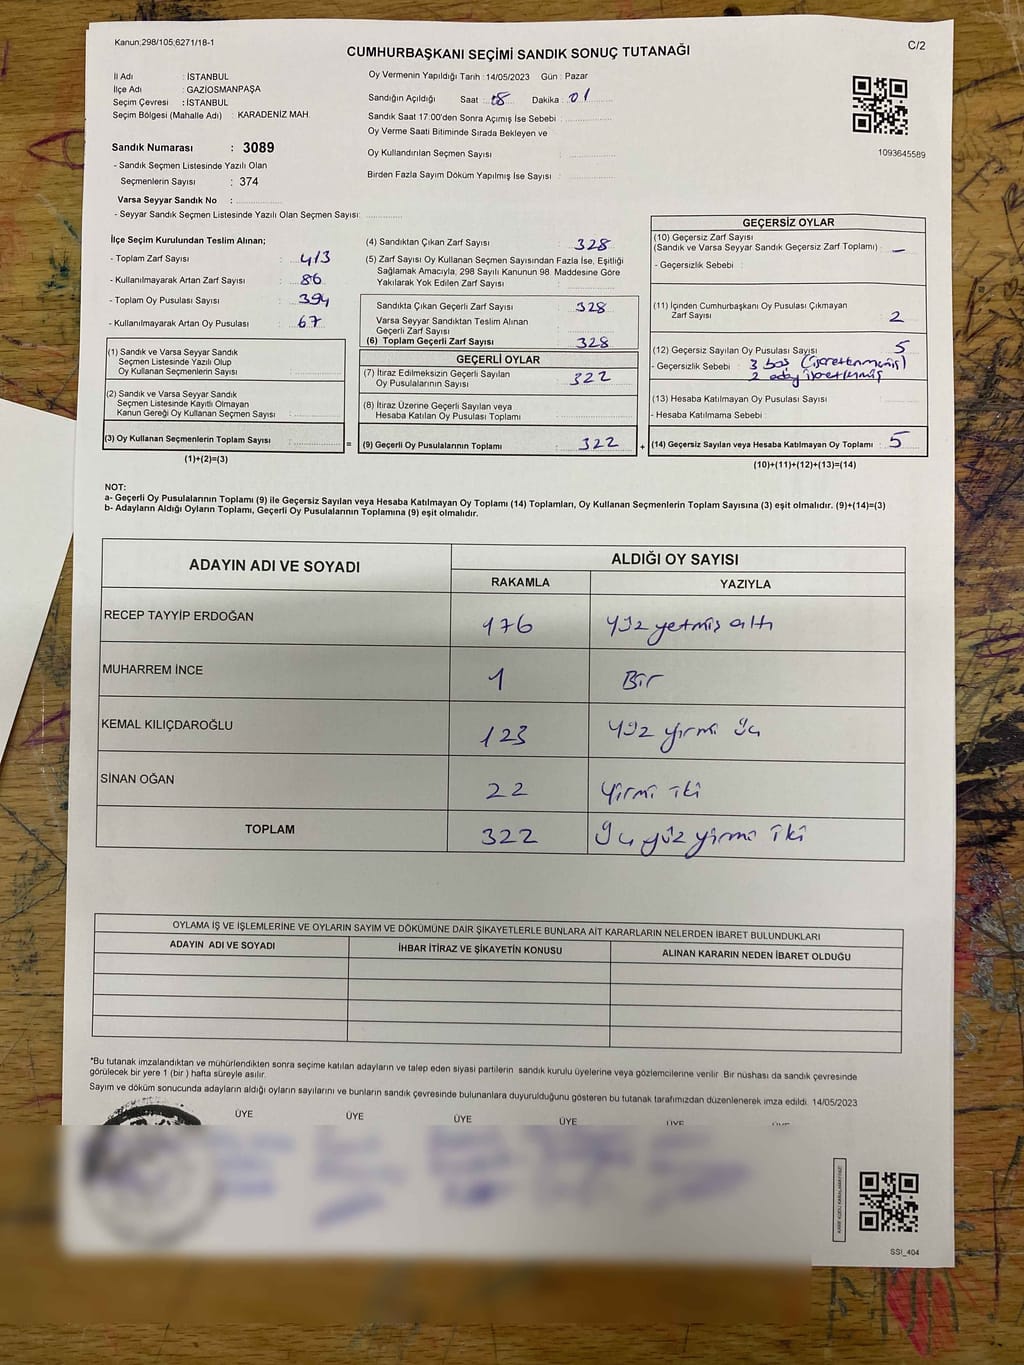 Kanun;298/105;6271/18-1
C/2
CUMHURBAŞKANI SEÇİMİ SANDIK SONUÇ TUTANAĞI
İl Adı : İSTANBUL
İlçe Adı : GAZİOSMANPAŞA
Seçim Çevresi : İSTANBUL
Seçim Bölgesi (Mahalle Adı) : KARADENİZ MAH.
Oy Vermenin Yapıldığı Tarih : 14/05/2023 Gün : Pazar
Sandığın Açıldığı Saat : 18 Dakika : 01
Sandık Saat 17:00'den Sonra Açımış İse Sebebi :
Oy Verme Saati Bitiminde Sırada Bekleyen ve
Oy Kullandırılan Seçmen Sayısı :
Birden Fazla Sayım Döküm Yapılmış İse Sayısı :
1093645589
Sandık Numarası : 3089
- Sandık Seçmen Listesinde Yazılı Olan
Seçmenlerin Sayısı : 374
Varsa Seyyar Sandık No :
- Seyyar Sandık Listesinde Yazılı Olan Seçmen Sayısı:
İlçe Seçim Kurulundan Teslim Alınan;
- Toplam Zarf Sayısı : 413
- Kullanılmayarak Artan Zarf Sayısı : 86
- Toplam Oy Pusulası Sayısı : 394
- Kullanılmayarak Artan Oy Pusulası : 67
(1) Sandık ve Varsa Seyyar Sandık
Seçmen Listesinde Yazılı Olup
Oy Kullanan Seçmenlerin Sayısı :
(2) Sandık ve Varsa Seyyar Sandık
Seçmen Listesinde Kayıtlı Olmayan
Kanun Gereği Oy Kullanan Seçmen Sayısı :
(3) Oy Kullanan Seçmenlerin Toplam Sayısı :
(1)+(2)=(3)
(4) Sandıktan Çıkan Zarf Sayısı : 328
(5) Zarf Sayısı Oy Kullanan Seçmen Sayısından Fazla İse, Eşitliği
Sağlamak Amacıyla, 298 Sayılı Kanunun 98. Maddesine Göre
Yakılarak Yok Edilen Zarf Sayısı :
Sandıkta Çıkan Geçerli Zarf Sayısı : 328
Varsa Seyyar Sandıktan Teslim Alınan
Geçerli Zarf Sayısı :
(6) Toplam Geçerli Zarf Sayısı : 328
GEÇERLİ OYLAR
(7) İtiraz Edilmeksizin Geçerli Sayılan
Oy Pusulalarının Sayısı : 322
(8) İtiraz Üzerine Geçerli Sayılan veya
Hesaba Katılan Oy Pusulası Toplamı :
= (9) Geçerli Oy Pusulalarının Toplamı : 322 +
GEÇERSİZ OYLAR
(10) Geçersiz Zarf Sayısı
(Sandık ve Varsa Seyyar Sandık Geçersiz Zarf Toplamı) : –
- Geçersizlik Sebebi :
(11) İçinden Cumhurbaşkanı Oy Pusulası Çıkmayan
Zarf Sayısı : 2
(12) Geçersiz Sayılan Oy Pusulası Sayısı : 5
- Geçersizlik Sebebi : 3 boş (işaretlenmemiş)
2 aday işaretlenmiş
(13) Hesaba Katılmayan Oy Pusulası Sayısı :
- Hesaba Katılmama Sebebi :
(14) Geçersiz Sayılan veya Hesaba Katılmayan Oy Toplamı : 5
(10)+(11)+(12)+(13)=(14)
NOT:
a- Geçerli Oy Pusulalarının Toplamı (9) ile Geçersiz Sayılan veya Hesaba Katılmayan Oy Toplamı (14) Toplamları, Oy Kullanan Seçmenlerin Toplam Sayısına (3) eşit olmalıdır. (9)+(14)=(3)
b- Adayların Aldığı Oyların Toplamı, Geçerli Oy Pusulalarının Toplamına (9) eşit olmalıdır.
ADAYIN ADI VE SOYADI
ALDIĞI OY SAYISI
RAKAMLA YAZIYLA
RECEP TAYYİP ERDOĞAN 176 Yüz yetmiş altı
MUHARREM İNCE 1 Bir
KEMAL KILIÇDAROĞLU 123 Yüz yirmi üç
SİNAN OĞAN 22 Yirmi iki
TOPLAM 322 Üç yüz yirmi iki
OYLAMA İŞ VE İŞLEMLERİNE VE OYLARIN SAYIM VE DÖKÜMÜNE DAİR ŞİKAYETLERLE BUNLARA AİT KARARLARIN NELERDEN İBARET BULUNDUKLARI
ADAYIN ADI VE SOYADI İHBAR İTİRAZ VE ŞİKAYETİN KONUSU ALINAN KARARIN NEDEN İBARET OLDUĞU
*Bu tutanak imzalandıktan ve mühürlendikten sonra seçime katılan adayların ve talep eden siyasi partilerin sandık kurulu üyelerine veya gözlemcilerine verilir. Bir nüshası da sandık çevresinde
görülecek bir yere 1 (bir ) hafta süreyle asılır.
Sayım ve döküm sonucunda adayların aldığı oyların sayılarını ve bunların sandık çevresinde bulunanlara duyurulduğunu gösteren bu tutanak tarafımızdan düzenlenerek imza edildi. 14/05/2023
ÜYE ÜYE ÜYE ÜYE ÜYE ÜYE
SSI_404